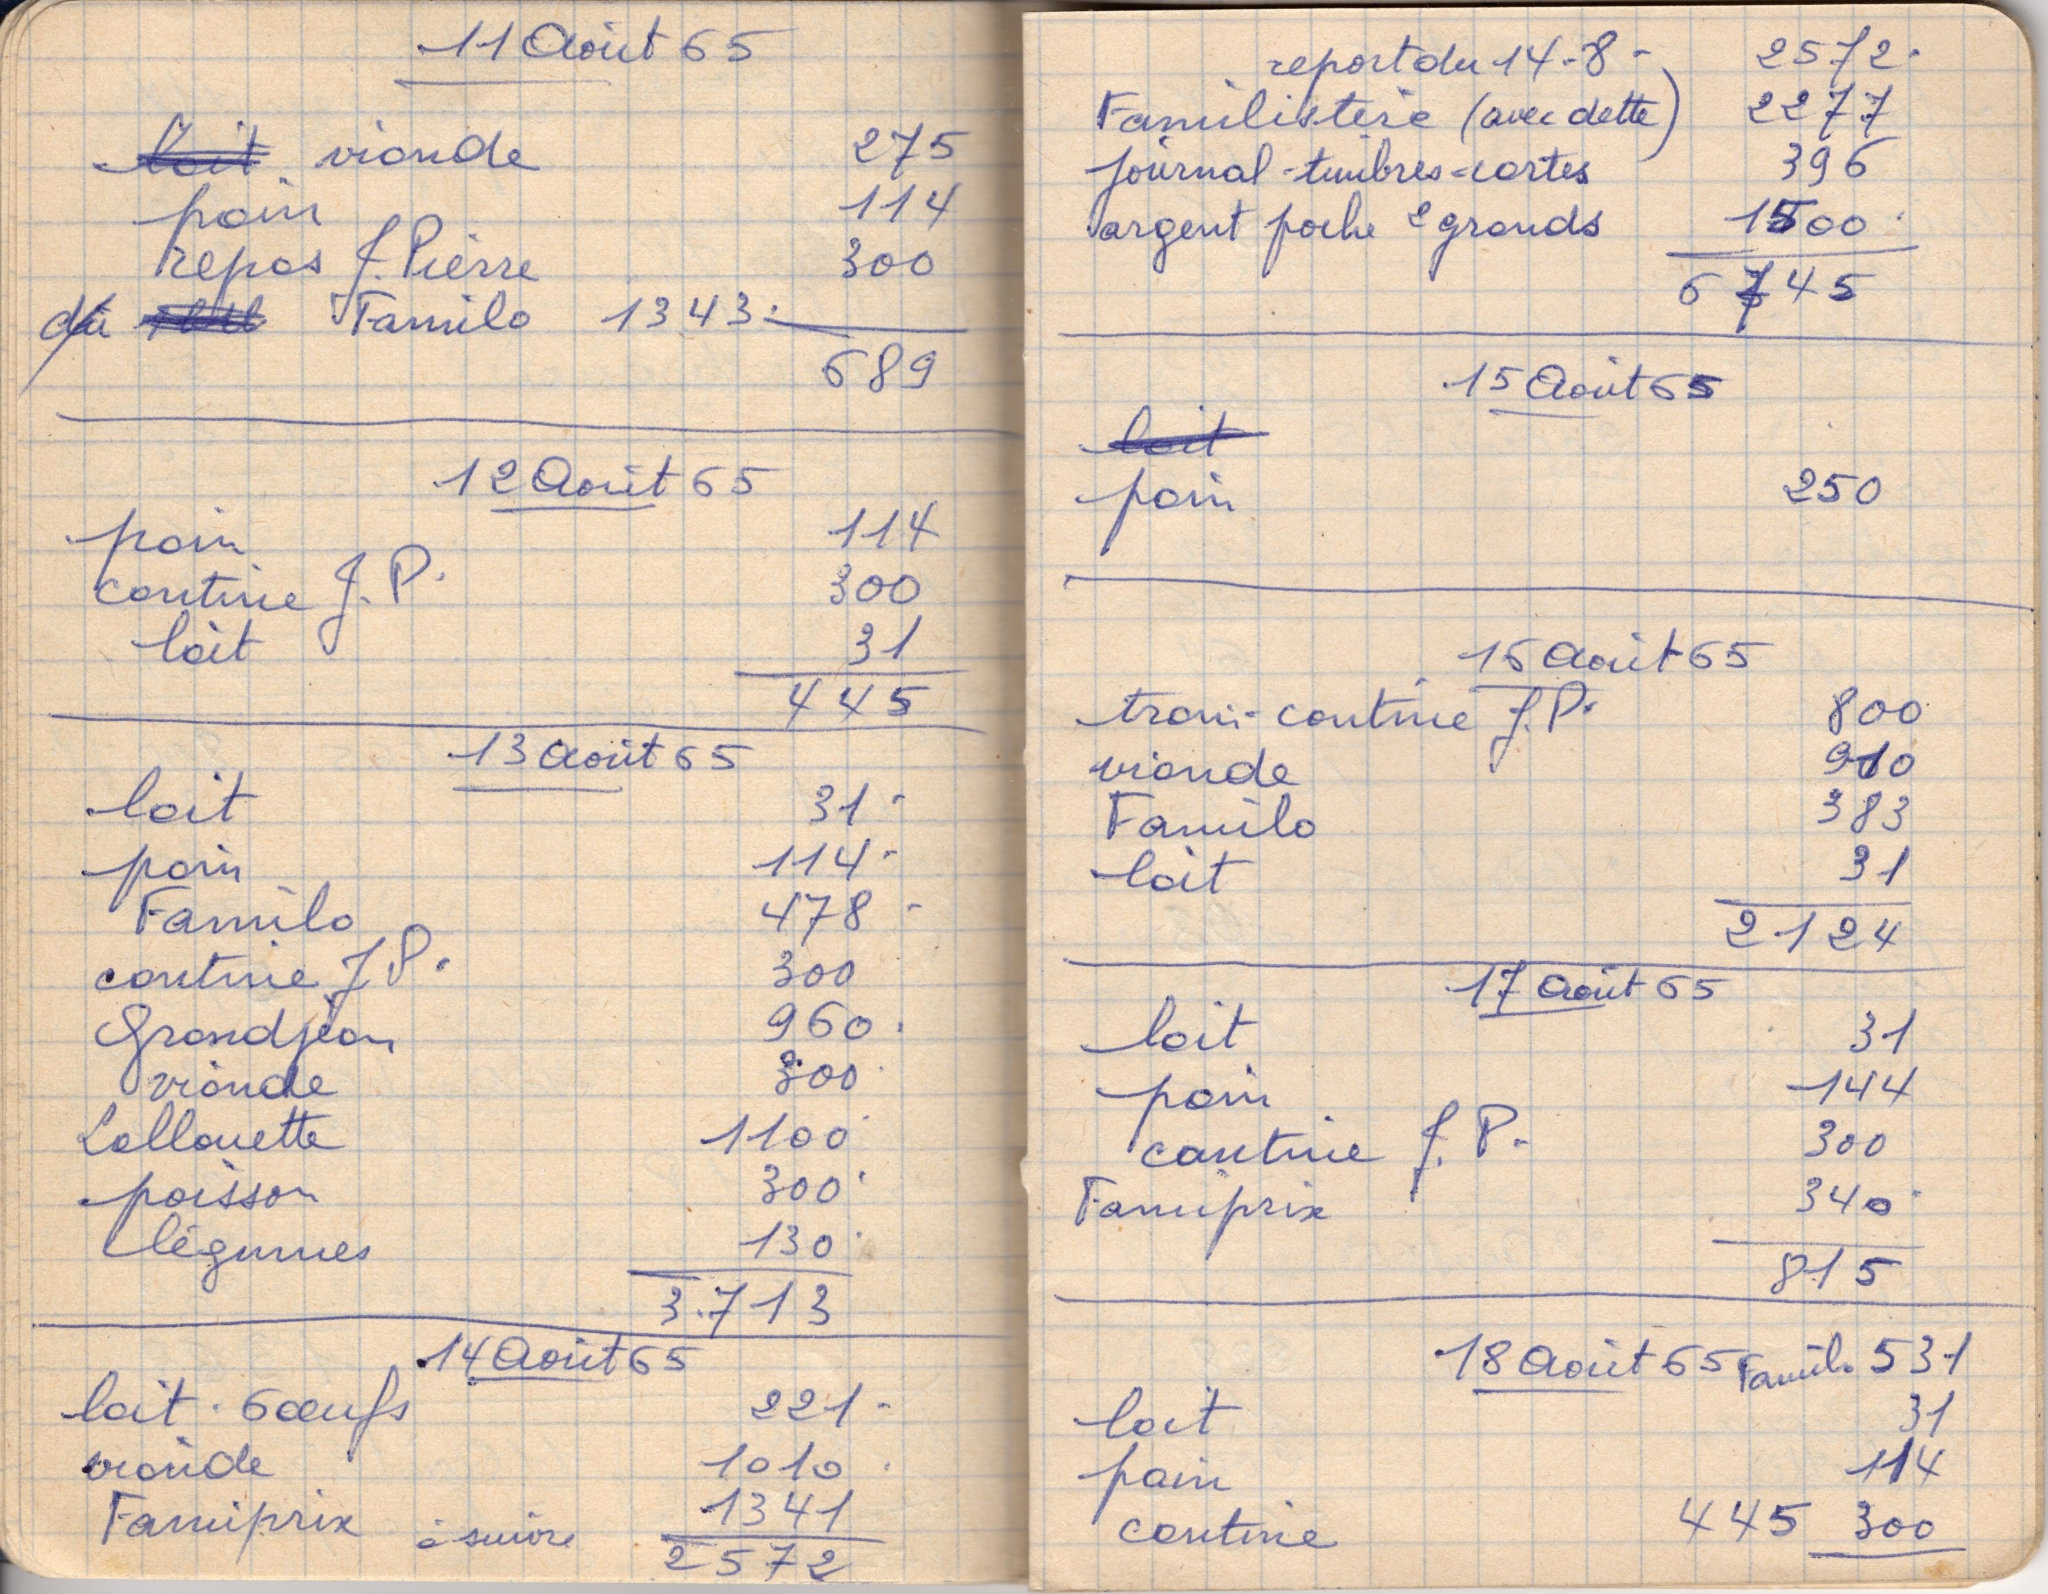 11 Août 65
lait viande 275
pain 114
repas J. Pierre 300
dû Familo 1343.
689
12 Août 65
pain 114
cantine J. P. 300
lait 31
445
13 août 65
lait 31
pain 114
Familo 478
cantine J P. 300
Grandjean 960
viande 300
Lallouette 1100
poisson 300
légumes 130
3.713
14 Août 65
lait - 6 œufs 221
viande 1010
Famiprix à suivre 1341
2572
report du 14-8- 2572
Familistère (avec dette) 2277
journal - timbres - cartes 396
argent poche 2 grands 1500
6745
15 Août 65
lait
pain 250
16 août 65
tram - cantine J. P. 800
viande 910
Familo 383
lait 31
2124
17 août 65
lait 31
pain 144
cantine J. P. 300
Famiprix 340
815
18 Août 65 Familo 531
lait 31
pain 114
cantine 445 300